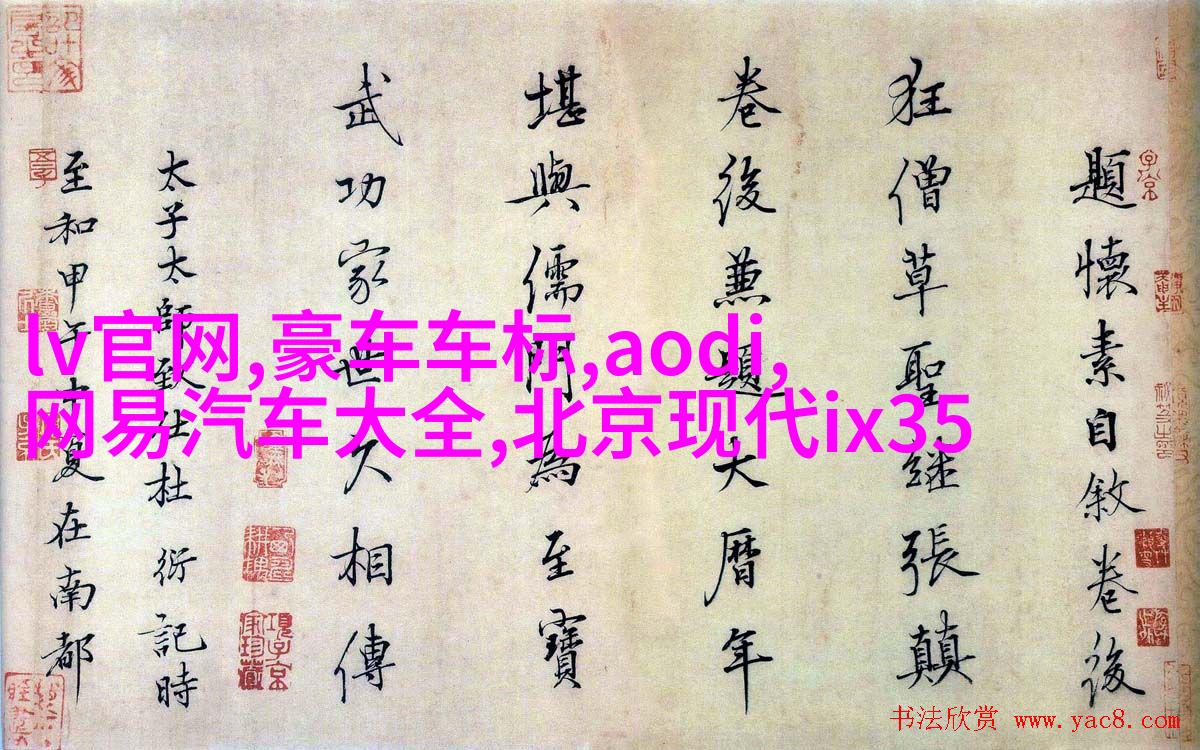 題懷素自敘卷後
狂僧草聖継張顛
卷後兼題大曆年
堪與儒門為至寶
武功家世久相傳
太子太師致仕杜衍記時
至和甲午夏在南都
lv官网,豪车车标,aodi,
网易汽车大全,北京现代ix35
項子京
家珍藏
书法欣赏 www.yac8.com